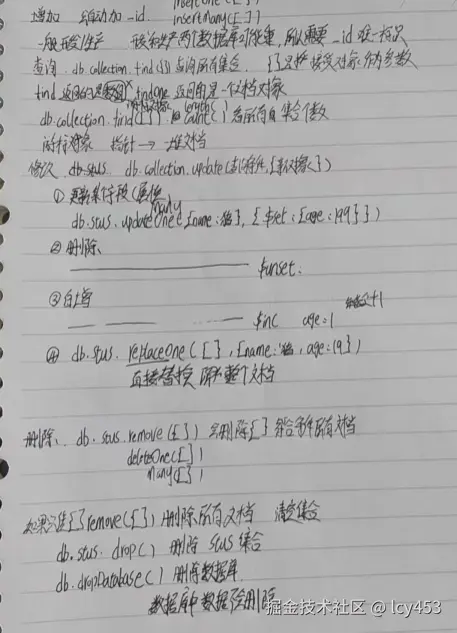 insertOne({})
增加 自动加 _id. insertMany([])
一般开发/生产 开发和生产两个数据库可能重,所以需要 _id 唯一标识
查询. db.collection.find({}) 查询所有集合. {}里接受对象作为参数
find 返回的是数组 findOne 返回的是一个文档对象
db.collection.find({}). count() 看所有集合个数
length()
指针 → 文档
修改. db.stus. db.collection.update(查询条件, {新对象})
① 更新某字段
Many
db.stus.updateOne({name:'猫'}, {$set:{age:199}})
② 删除、
$unset.
③自增
$inc age:1 +1
④ db.stus.replaceOne({}, {name:'猫, age:19})
直接替换 整个文档
删除、 db.stus.remove({}) 会删除{}符合条件所有文档
deleteOne({})
Many({})
如果只准{}remove({}) 删除所有文档 清空集合
db.stus.drop() 删除 stus 集合
db.dropDatabase() 删除数据库
数据库中数据 删除
掘金技术社区 @ lcy453